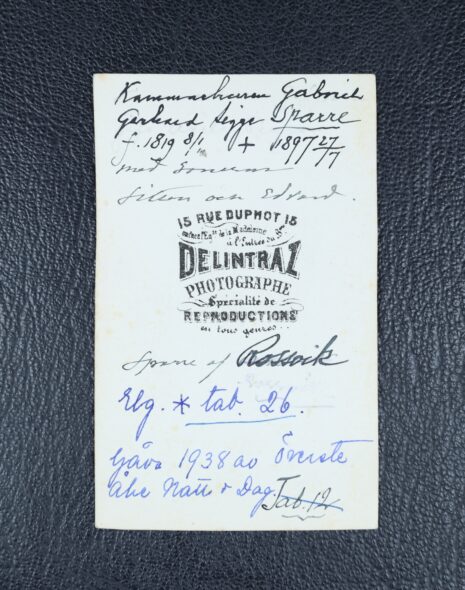 Kammarherren Gabriel
Gerhard Sigge Sparre
f. 1819 8/1 + 1897 27/7
med sönerna
Sixten och Edvard.
15 RUE DUPHOT 15
entrée de la Madeleine
à l'Entrée du
DELINTRAZ
PHOTOGRAPHE
Spécialité de
REPRODUCTIONS
en tous genres..
Sparre af Rossvik
Elg. * tab. 26.
Gåva 1938 av Överste
Åke Natt o Dag.
Tab. 12